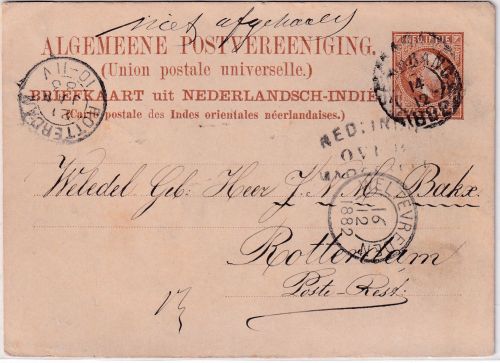 niet afgehaald
ALGEMEENE POSTVEREENIGING.
(Union postale universelle.)
BRIEFKAART uit NEDERLANDSCH-INDIË.
(Carte postale des Indes orientales néerlandaises.)
14
12
1882
ROTTERDAM
NED: IND
WELTEVREDEN
16
12
1882
Weledel Geb: Heer J. N. M. Bakx.
Rotterdam
Poste-Rest:
13